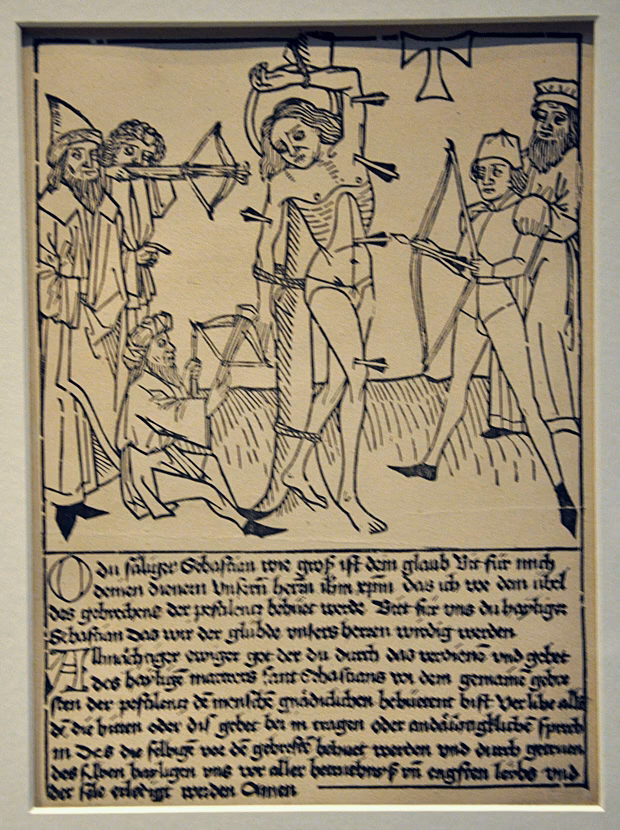 O du säliger Sebastian wie groß ist dein glaub Bit für mich
deinen dienern Unsern herrn ihm xpm das ich vor dem übel
des gebrechens der pestilentz behüet werde Bitt für uns du hayliger
Sebastian Das wir der glübde unsers herren wirdig werden
Allmächtiger ewiger got der du durch das verdienen und gebet
des haylige martrers sant Sebastians vor dem gemaine gebre
sten der pestilentz de mensche gnädiclichen behüetent bist Verlihe alle
de die bitten oder dis gebet bei in tragen oder andächtigkliche sprech
in Des die selbige vor de gebreste behüet werden und durch getruen
des selben hayligen uns vor aller betrüebnus un engsten leibs und
der sele erlediget werden Amen